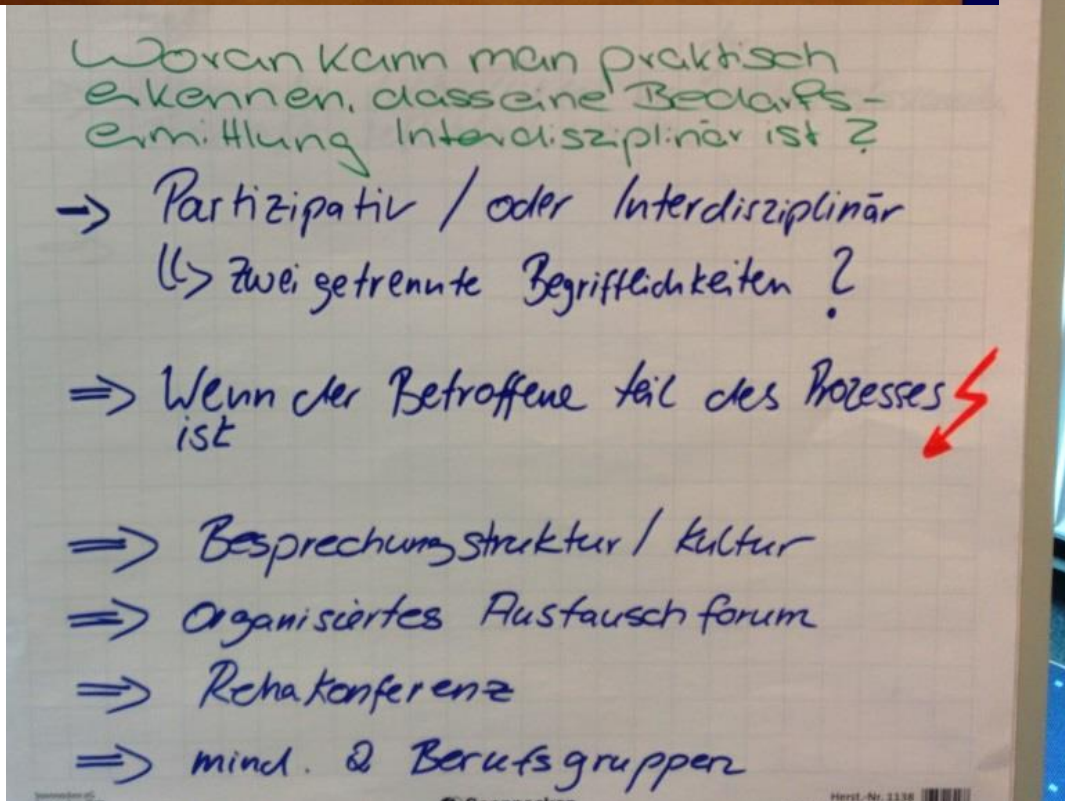 Woran kann man praktisch
erkennen, dass eine Bedarfs-
ermittlung Interdisziplinär ist?
-> Partizipativ / oder Interdisziplinär
↳ Zwei getrennte Begrifflichkeiten ?
=> Wenn der Betroffene teil des Prozesses
ist
=> Besprechungstruktur / Kultur
=> Organisiertes Austauschforum
=> Rehakonferenz
=> mind. 2 Berufsgruppen
Herst.-Nr. 1138